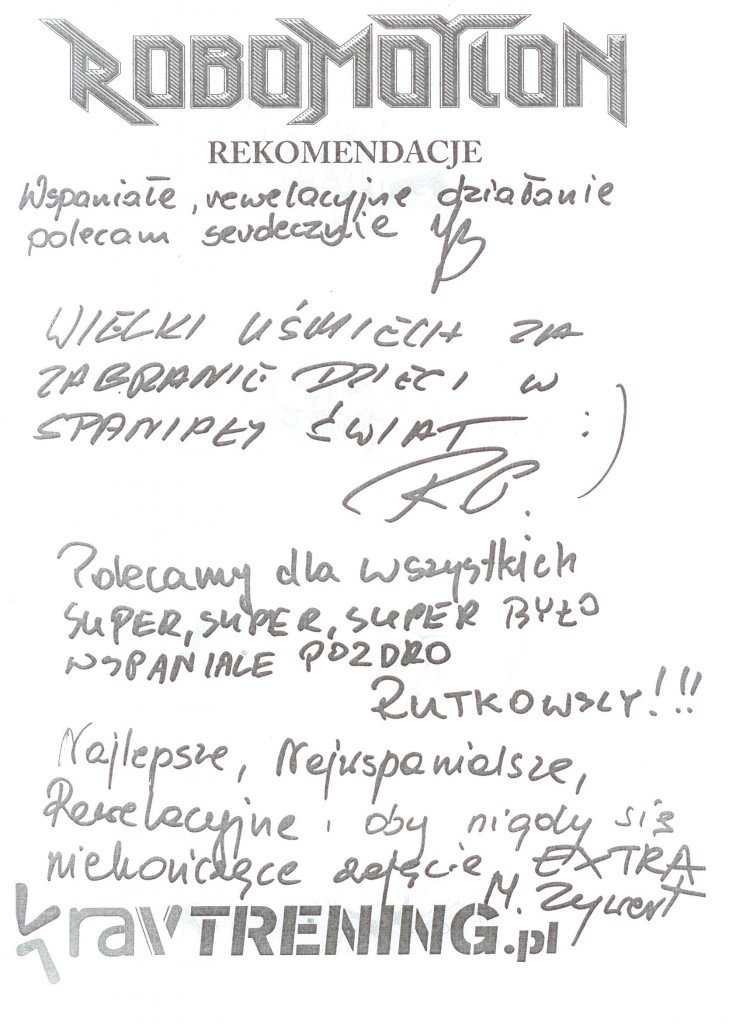 ROBOMOTION
REKOMENDACJE
Wspaniałe, rewelacyjne działanie
polecam serdecznie
WIELKI UŚMIECH ZA
ZABRANIE DZIECI W
SPANIAŁY ŚWIAT :)
RC.
Polecamy dla wszystkich
SUPER, SUPER, SUPER BYŁO
WSPANIALE POZDRO
RUTKOWSCY!!!
Najlepsze, Najwspanialsze,
Rewelacyjne, oby nigdy się
niekończące zajęcie EXTRA
M. Zywert
kravTRENING.pl